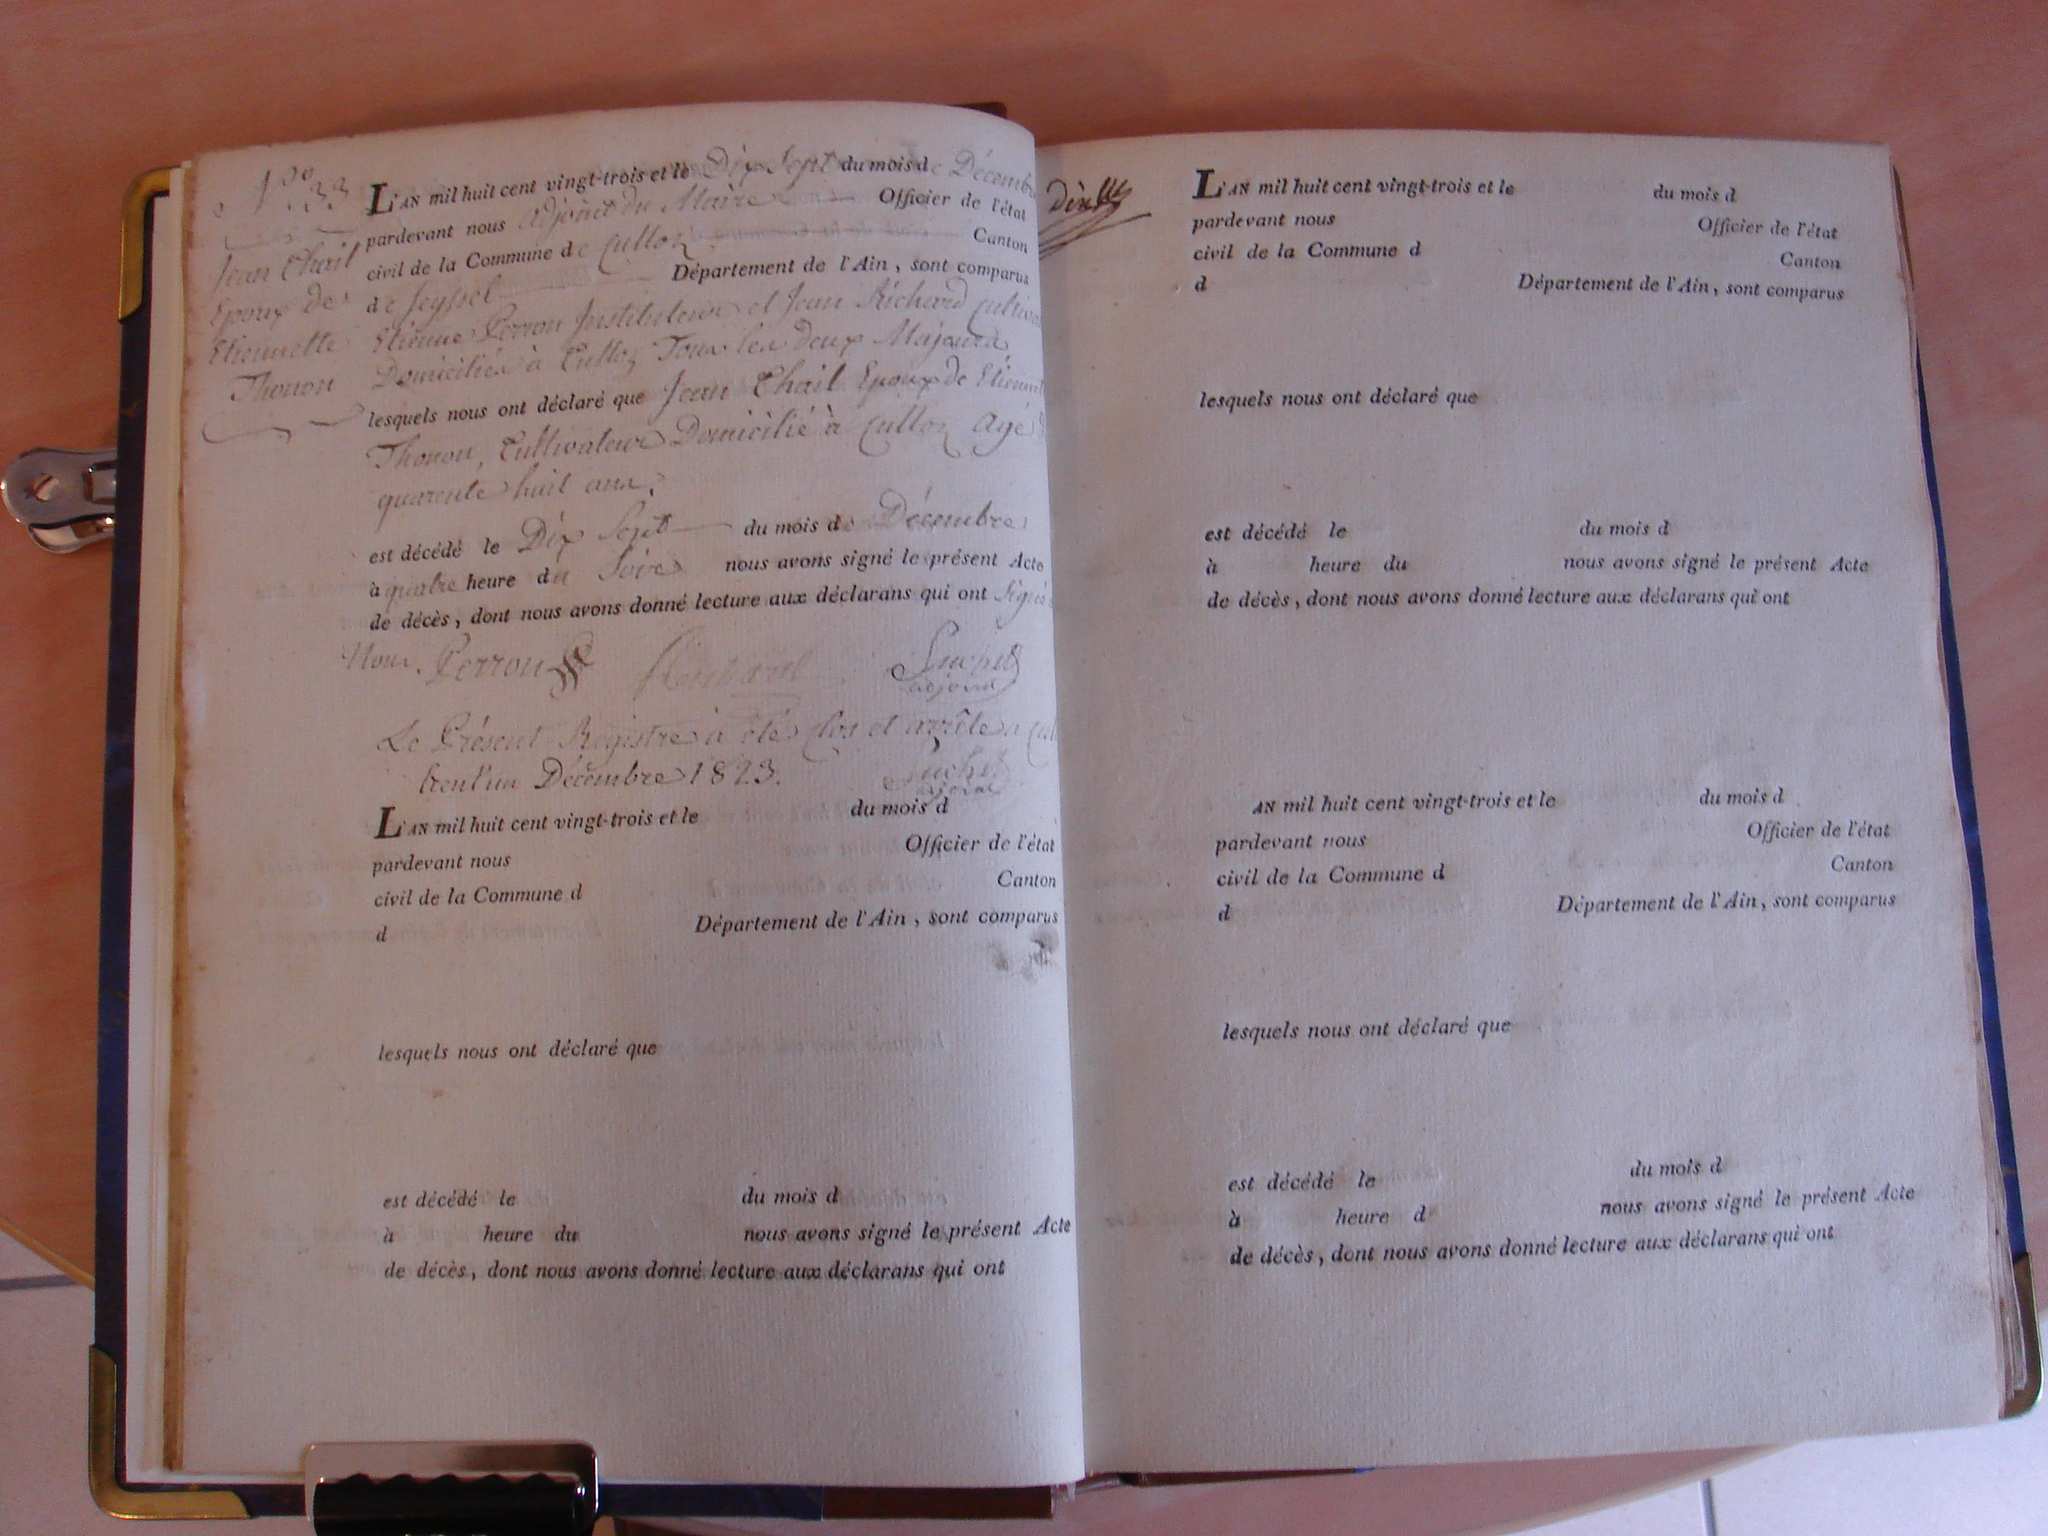 N° 33
Jean Chail
Epoux de
Etiennette
Thonon
L'AN mil huit cent vingt-trois et le Dix Sept du mois de Décembre
pardevant nous adjoint du Maire Officier de l'état
civil de la Commune de Culloz Canton
de Seyssel Département de l'Ain, sont comparus
Etienne Perron Instituteur et Jean Richard Cultiva
Domiciliés à Culloz Tous les deux Majeurs
lesquels nous ont déclaré que Jean Chail Epoux de Etiennet
Thonon, Cultivateur Domicilié à Culloz Agé
quarente huit ans.
est décédé le Dix Sept du mois de Décembre
à quatre heure du Soire nous avons signé le présent Acte
de décès, dont nous avons donné lecture aux déclarans qui ont Signés
Nous. Perron Suchet
adjoint
Le Présent Registre a été clos et arrêté a Cul
trent'un Décembre 1823. Suchet
adjoint
L'AN mil huit cent vingt-trois et le du mois d
pardevant nous Officier de l'état
civil de la Commune d Canton
d Département de l'Ain, sont comparus
lesquels nous ont déclaré que
est décédé le du mois d
à heure du nous avons signé le présent Acte
de décès, dont nous avons donné lecture aux déclarans qui ont
dix
L'AN mil huit cent vingt-trois et le du mois d
pardevant nous Officier de l'état
civil de la Commune d Canton
d Département de l'Ain, sont comparus
lesquels nous ont déclaré que
est décédé le du mois d
à heure du nous avons signé le présent Acte
de décès, dont nous avons donné lecture aux déclarans qui ont
AN mil huit cent vingt-trois et le du mois d
pardevant nous Officier de l'état
civil de la Commune d Canton
d Département de l'Ain, sont comparus
lesquels nous ont déclaré que
est décédé le du mois d
à heure d nous avons signé le présent Acte
de décès, dont nous avons donné lecture aux déclarans qui ont